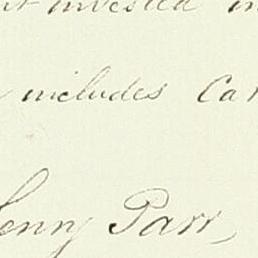 invested in
includes Car
enry Parr